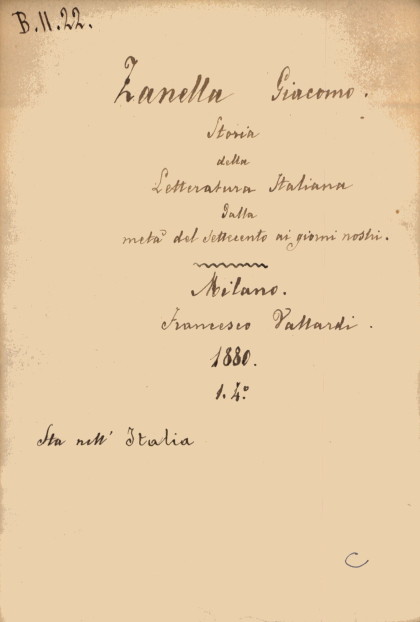 B.11.22.
Zanella Giacomo.
Storia
della
Letteratura Italiana
dalla
metà del settecento ai giorni nostri.
Milano.
Francesco Vallardi.
1880.
1. 4.º
Sta nell' Italia
C